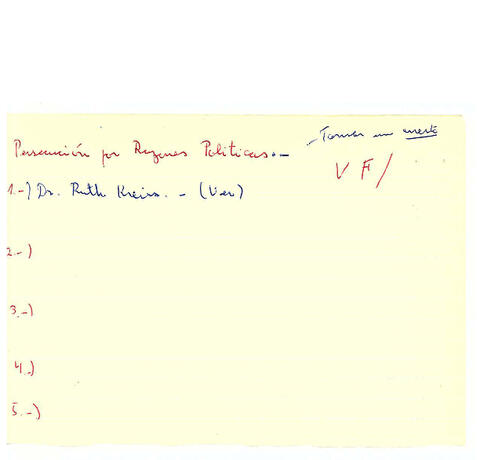 - Tomar en cuenta
Persecución por Razones Políticas.-
V F/
1.-) Dr. Ruth (Ver)
2.-)
3.-)
4.-)
5.-)